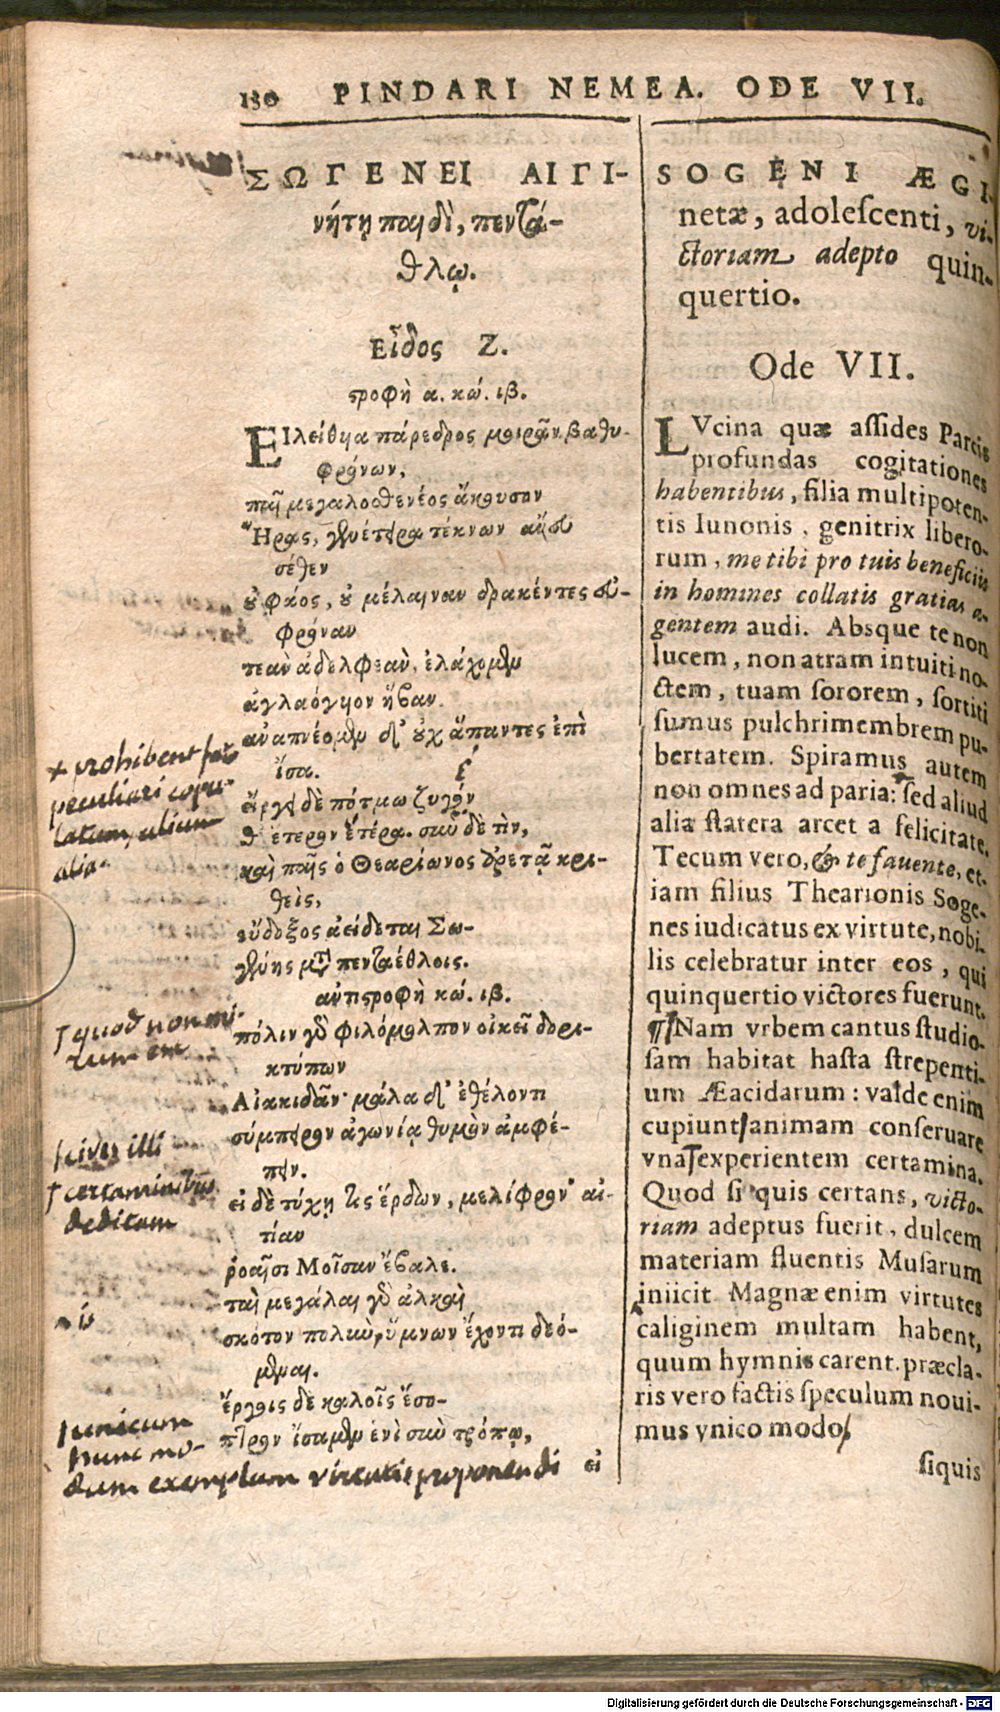 130 PINDARI NEMEA. ODE VII.
ΣΩΓΕΝΕΙ ΑΙΓΙ-
νήτῃ παιδὶ, πεντά-
θλῳ.
Εἶδος Ζ.
ςροφὴ α. κώ. ιβ.
ΕΙλείθυια πάρεδρος μοιρᾶν βαθυ-
φρόνων,
παῖ μεγαλοσθενέος ἄκουσον
Ἥρας, γενέτειρα τέκνων ἄνευ
σέθεν
οὐ φάος, οὐ μέλαιναν δρακέντες εὐ-
φρόναν
τεὰν ἀδελφεὰν, ἐλάχομεν
ἀγλαόγυιον ἥβαν.
ἀναπνέομεν δ' οὐχ ἅπαντες ἐπὶ
ἴσα.
εἴργει δὲ πότμω ζυγέν
θ' ἕτερον ἕτερα. σὺν δὲ τὶν,
καὶ παῖς ὁ Θεαρίωνος ἀρετᾷ κρι-
θεὶς,
εὔδοξος ἀείδεται Σω-
γένης μετὰ πενταέθλοις.
ἀντιςροφὴ κώ. ιβ.
πόλιν γὰρ φιλόμολπον οἰκεῖ δορι-
κτύπων
Αἰακιδᾶν· μάλα δ' ἐθέλοντι
σύμπειρον ἀγωνία θυμὸν ἀμφέ-
πειν.
εἰ δὲ τύχῃ τις ἔρδων, μελίφρον' αἰ-
τίαν
ῥοαῖσι Μοῖσαν ἔβαλε.
ταὶ μεγάλαι γὰρ ἀλκαὶ
σκότον πολὺν, ὕμνων ἔχοντι δεό-
μεναι.
ἔργοις δὲ καλοῖς ἔσο-
πτρον ἴσαμεν ἑνὶ σὺν τρόπῳ,
εἰ
+ prohibent
peculiari copu-
latum, alium
alia.
quod non mi-
rum
cives illi
certaminibus
deditam
unicum
hunc mo-
dum exemplum virtutis proponendi
SOGENI ÆGI-
netæ, adolescenti, vi-
ctoriam adepto quin-
quertio.
Ode VII.
LVcina quæ assides Parcis
profundas cogitationes
habentibus, filia multipoten-
tis Iunonis, genitrix libero-
rum, me tibi pro tuis beneficiis
in homines collatis gratias a-
gentem audi. Absque te non
lucem, non atram intuiti no-
ctem, tuam sororem, sortiti
sumus pulchrimembrem pu-
bertatem. Spiramus autem
non omnes ad paria: sed aliud
alia statera arcet a felicitate.
Tecum vero, & te favente, et-
iam filius Thearionis Soge-
nes iudicatus ex virtute, nobi-
lis celebratur inter eos, qui
quinquertio victores fuerunt.
¶Nam vrbem cantus studio-
sam habitat hasta strepenti-
um Æacidarum: valde enim
cupiunt animam conseruare
vna experientem certamina.
Quod si quis certans, victo-
riam adeptus fuerit, dulcem
materiam fluentis Musarum
iniicit. Magnæ enim virtutes
caliginem multam habent,
quum hymnis carent. præcla-
ris vero factis speculum noui-
mus vnico modo,
siquis
Digitalisierung gefördert durch die Deutsche Forschungsgemeinschaft - DFG